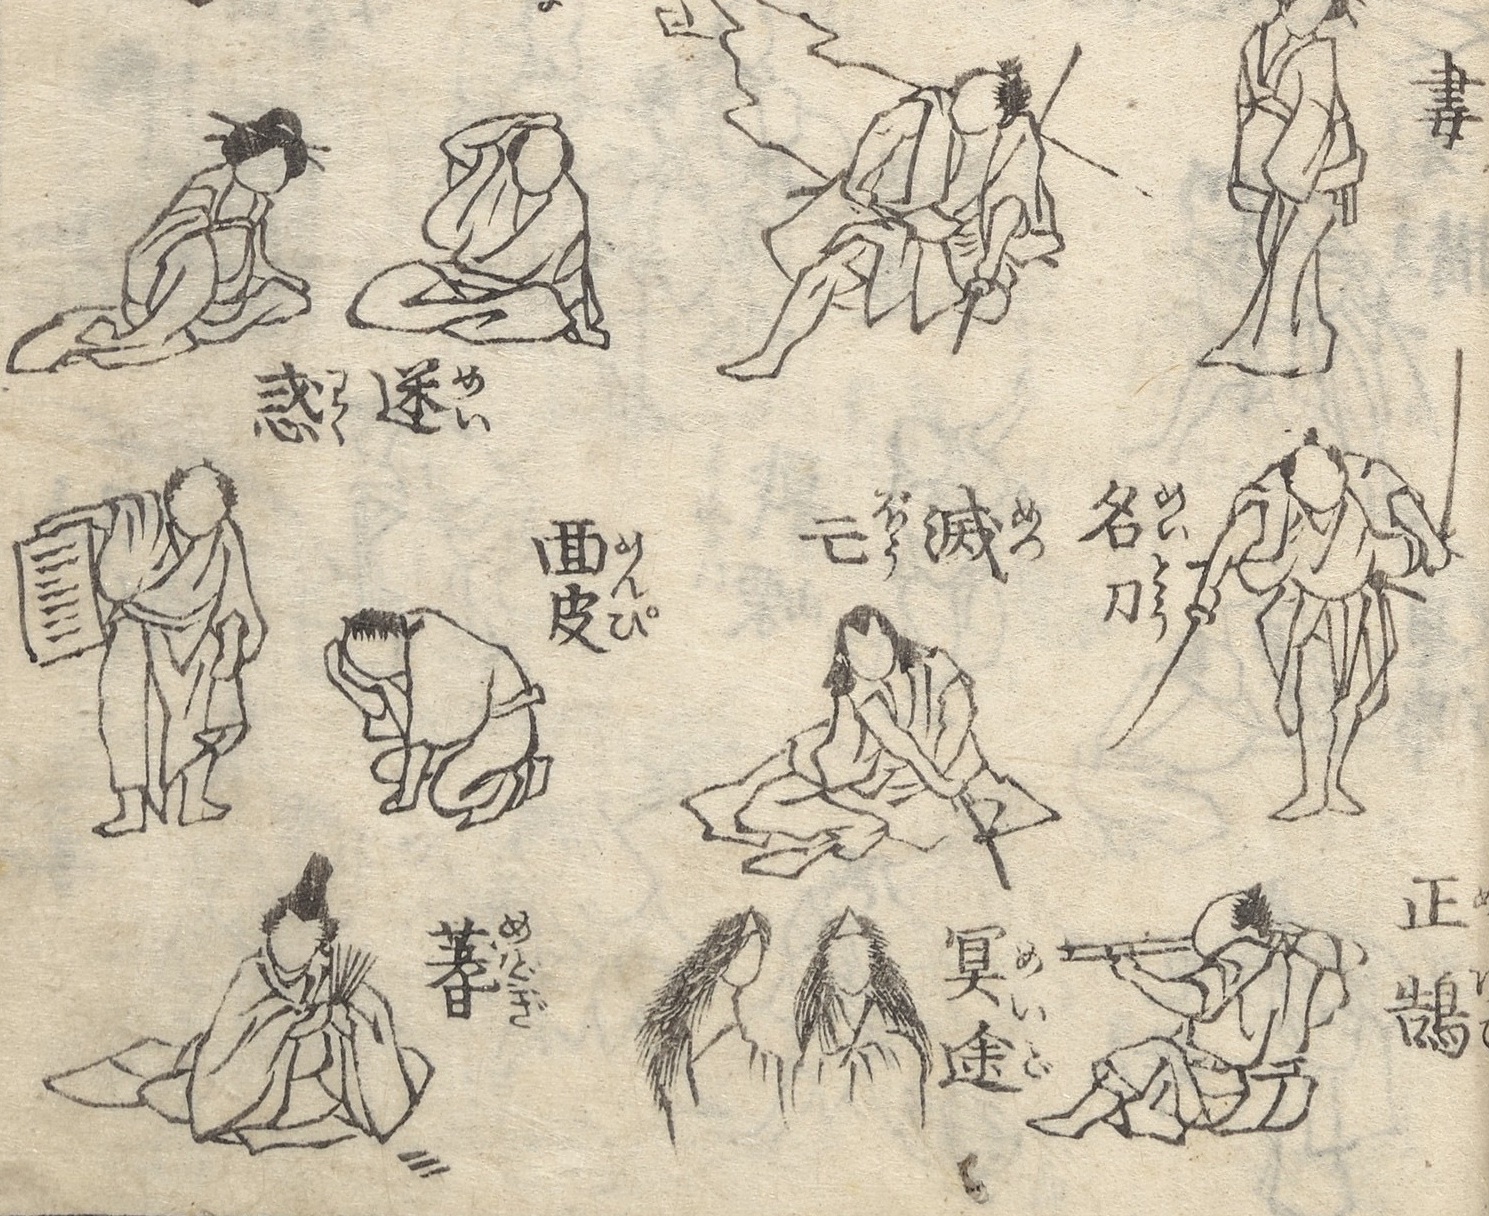 妻
正鵠
名刀
めいとう
滅亡
めつ
冥途
めいど
迷惑
めい
わく
面皮
めんぴ
蓍
めどぎ